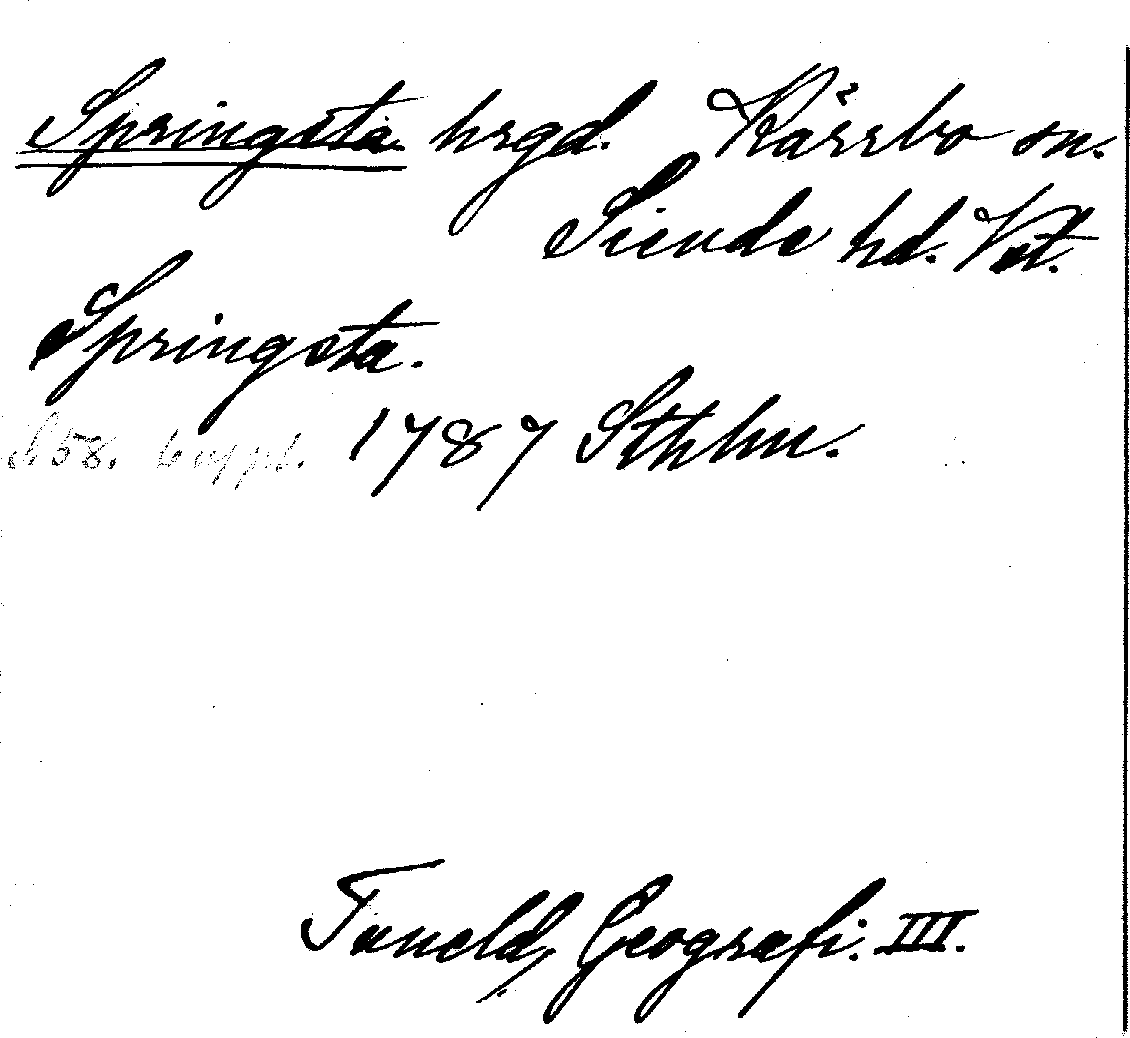 Springsta. hrgd. Kärrbo sn.
Siende hd. Vst.
Springsta.
s. 58. 6 uppl. 1787 Sthlm.
Tuneld, Geografi. III.